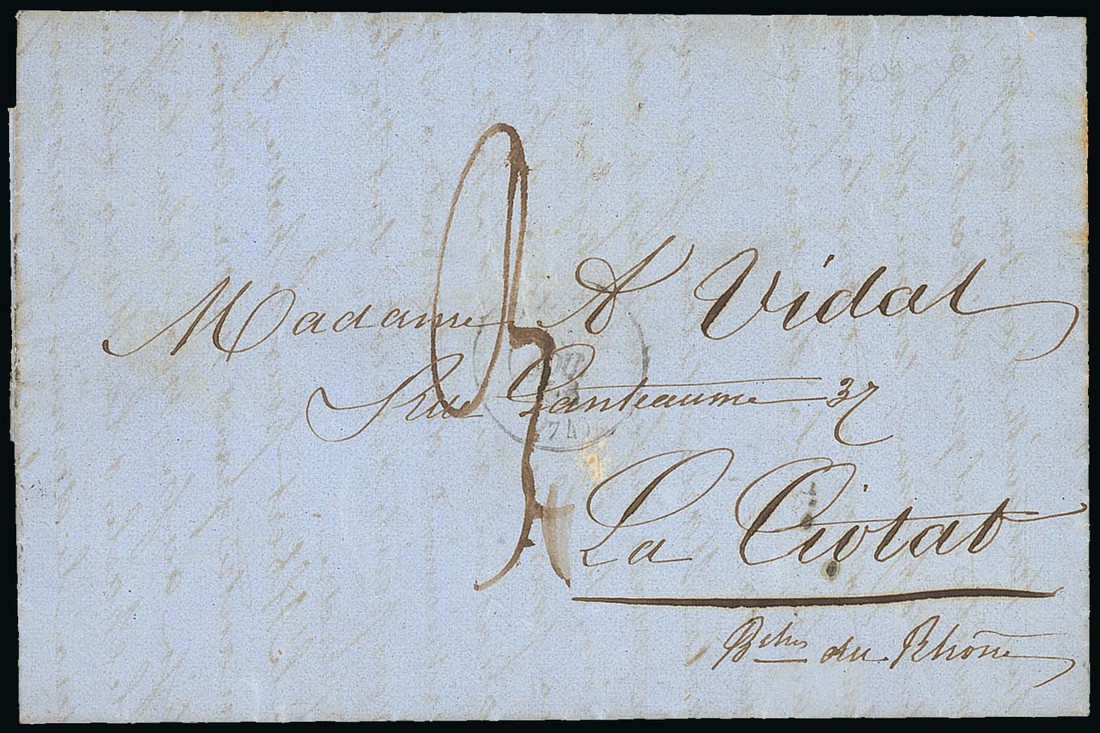 Madame A Vidal
Rue Ganteaume 37
La Ciotat
Bches du Rhône